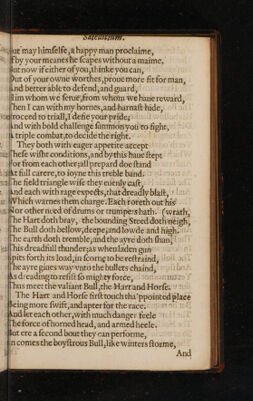 Satyricum.
ut may himselfe, a happy man proclaime,
Thy your meanes he scapes without a maime.
ut now if either of you, thinke you can,
Out of your owne worthes, proue more fit for man,
nd better able to defend, and guard,
Him whom we serue, from whom we haue reward,
hen I can with my hornes, and harnast hide,
roceed to triall, I defie your pride;
nd with bold challenge summon you to fight,
triple combat, to decide the right.
They both with eager appetite accept
hese wisht conditions, and by this haue stept
or from each other; all prepard doe stand
t full carere, to ioyne this treble band.
he field triangle wise they euenly cast,
nd each with rage expects, that dreadly blast,
Which warnes them charge. Each roreth out his
Nor other need of drums or trumpets hath. (wrath,
he Hart doth bray, the bounding Steed doth neigh,
he Bull doth bellow, deepe, and lowde and high.
he earth doth tremble, and the ayre doth shun,
his dreadfull thunder; as when laden gun
pits forth its load, in scorng to be restraind,
he ayre giues way vnto the bullets chaind,
s dreading to resist so mighty force,
hus meet the valiant Bull, the Hart and Horse.
The Hart and Horse first touch tha'ppointed place
eing more swift, and apter for the race.
nd let each other, with much danger feele
he force of horned head, and armed heele.
ut ere a second bout they can performe,
n comes the boystrous Bull, like winters storme,
And